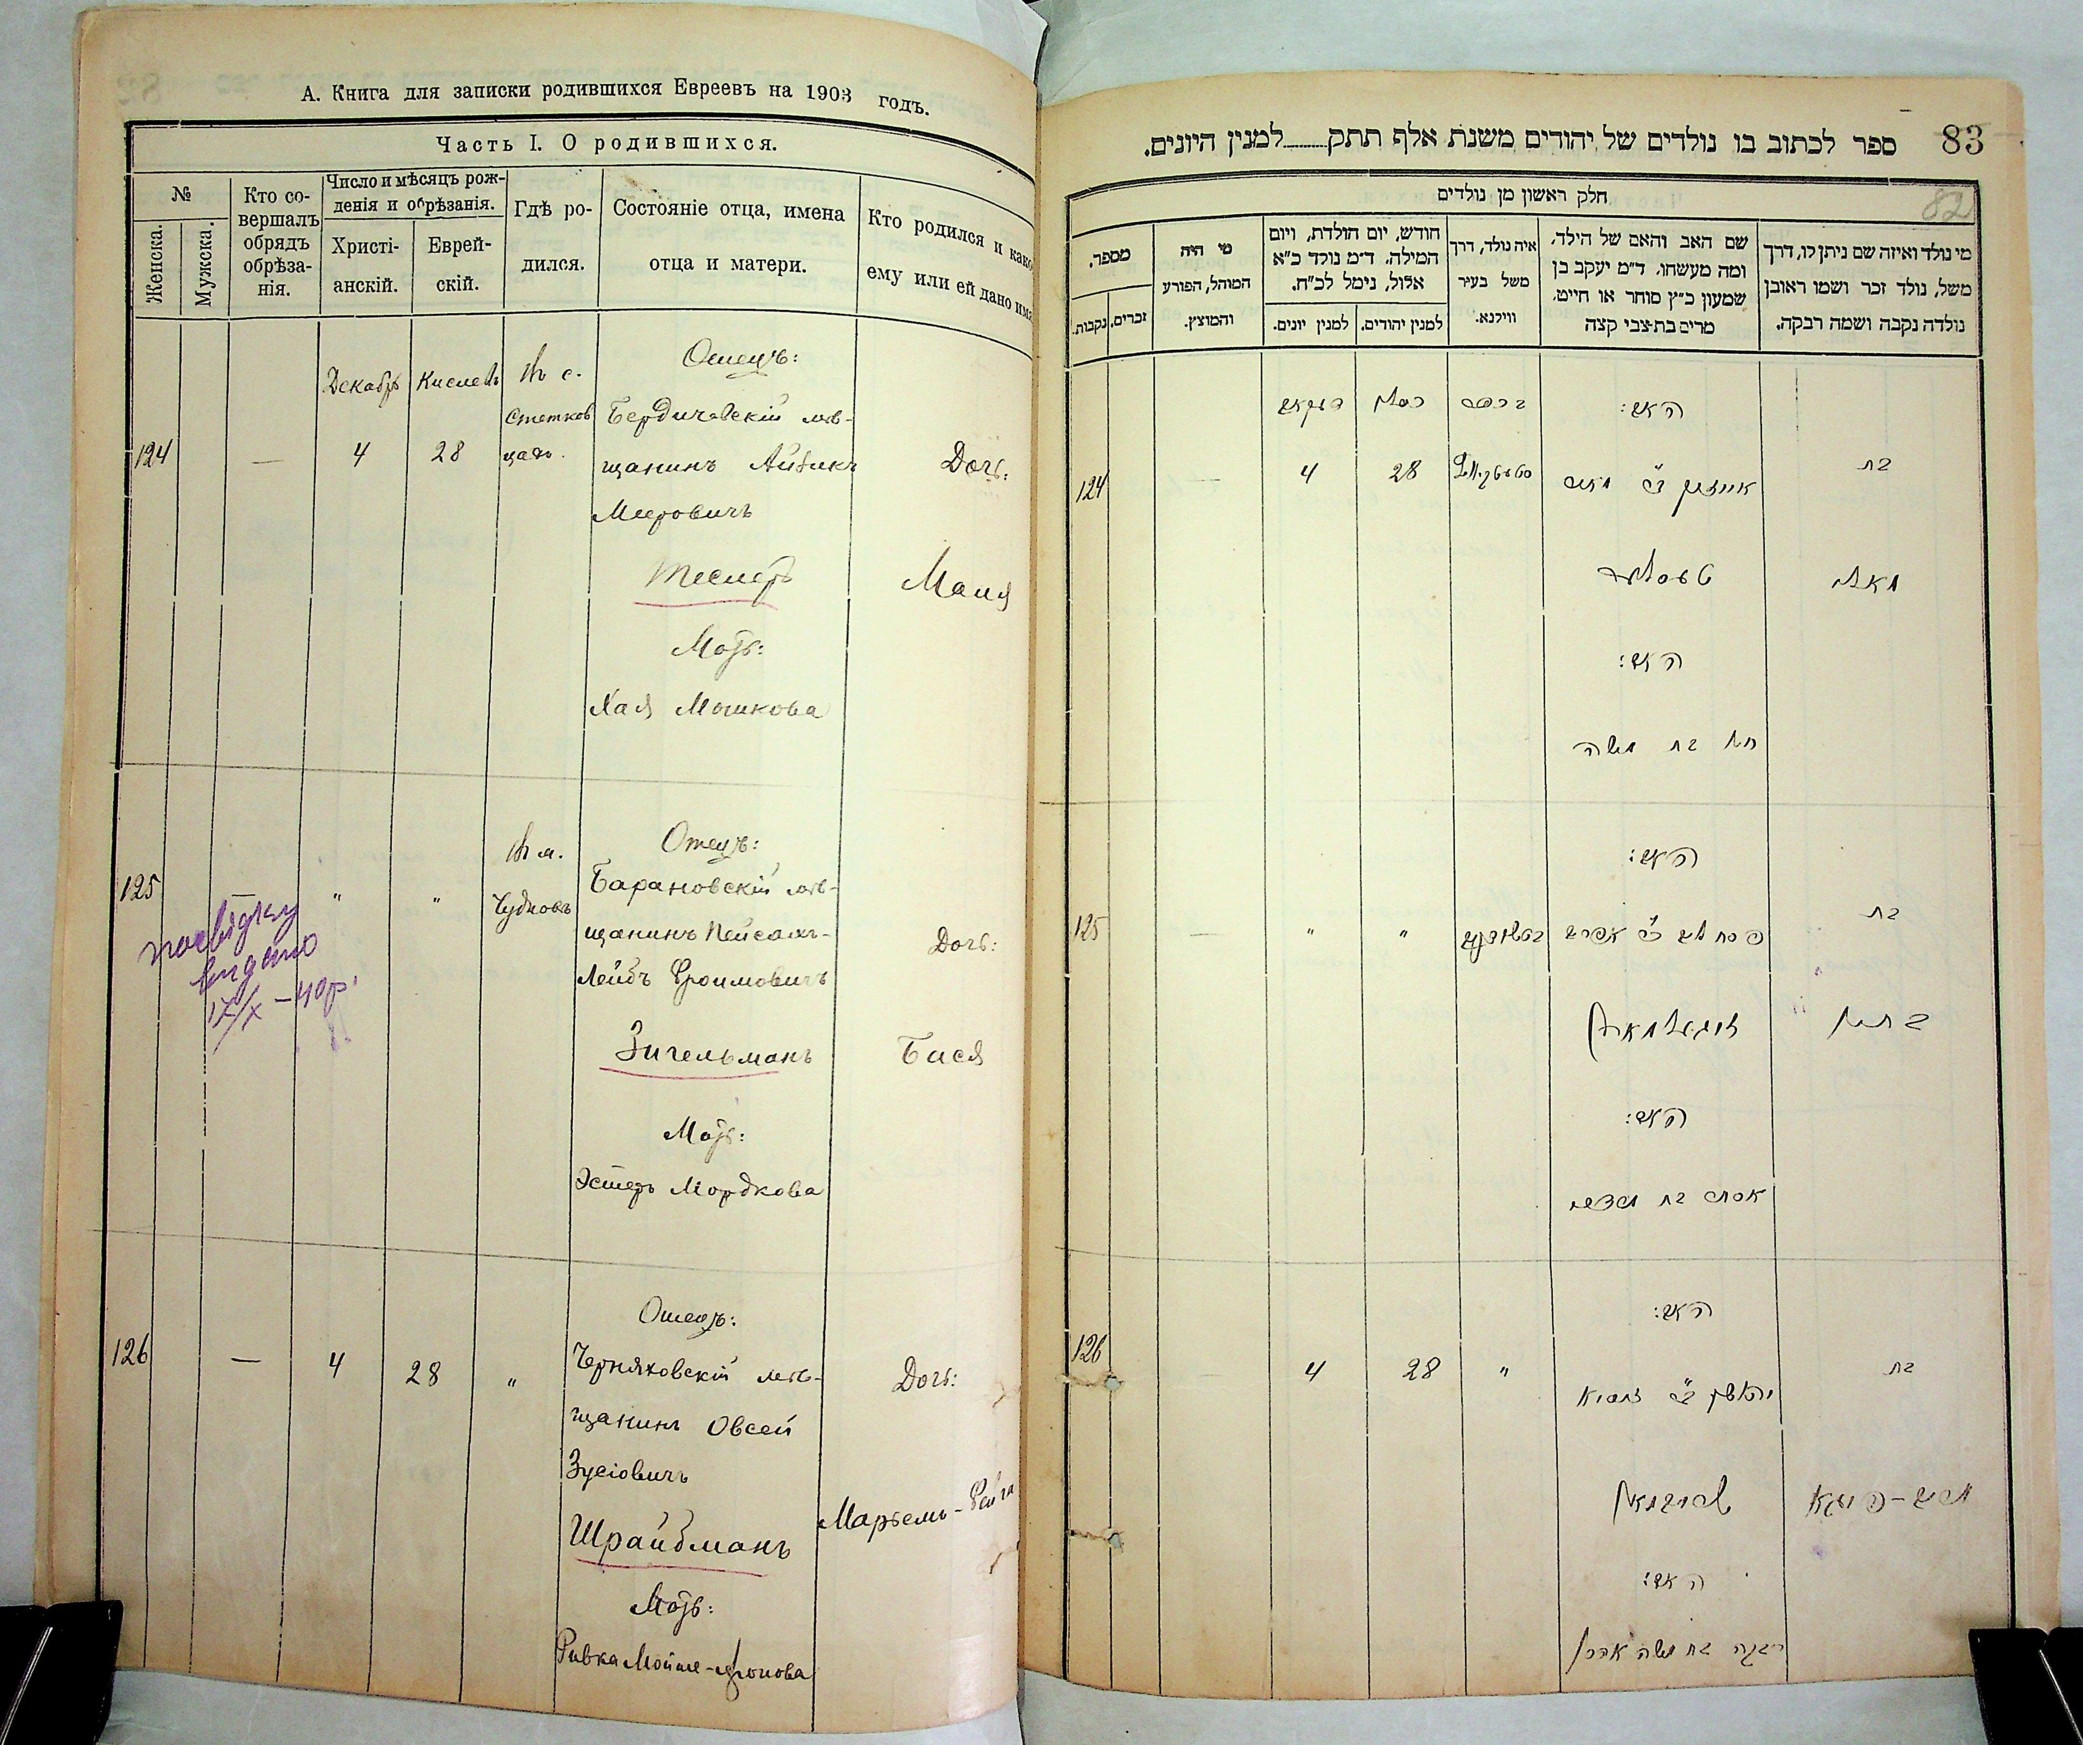 А. Книга для записки родившихся Евреевъ на 1903 годъ.
Часть I. О родившихся.
№
Женска.
Мужска.
Кто со-
вершалъ
обрядъ
обрѣза-
нія.
Число и мѣсяцъ рож-
денія и обрѣзанія.
Христі-
анскій.
Еврей-
скій.
Гдѣ ро-
дился.
Состояніе отца, имена
отца и матери.
Кто родился и како
ему или ей дано имя
124
—
Декабрь
4
Кислевъ
28
Въ с.
Стетков
цахъ.
Отецъ:
Бердичевскій мѣ-
щанинъ Айзикъ
Мееровичъ
Теслеръ
Мать:
Хая Мошкова
Дочь:
Маня
125
—
"
"
Въ м.
Чудновъ
Отецъ:
Барановскій мѣ-
щанинъ Пейсахъ-
Лейбъ Фроимовичъ
Зигельманъ
Мать:
Эстеръ Мордкова
Дочь:
Бася
посвідку
видано
IX/X – 40р.
126
—
4
28
"
Отецъ:
Черняховскій мѣ-
щанинъ Овсей
Зусіовичъ
Шрайбманъ
Мать:
Ривка Мойше-Аронова
Дочь:
Марьемъ-Фейга
83
82
ספר לכתוב בו נולדים של יהודים משנת אלף תתק למנין היונים.
חלק ראשון מן נולדים
מספר.
נקבות.
זכרים.
מי היה
המוהל, הפורע
והמוצץ.
חודש, יום הולדת, ויום
המילה. ד״מ נולד כ״א
אלול, נימל לכ״ח.
למנין יונים.
למנין יהודים.
איה נולד, דרך
משל בעיר
ווילנא.
שם האב והאם של הילד,
ומה מעשהו. ד״מ יעקב בן
שמעון כ״ץ סוחר או חייט,
מרים בת צבי קצה
מי נולד ואיזה שם ניתן לו, דרך
משל, נולד זכר ושמו ראובן
נולדה נקבה ושמה רבקה.
124
—
דעקאב
4
כסלו
28
בכפר
האב:
אייזיק ב״ר מאיר
טעסלער
האם:
חי׳ בת משה
בת
מאני׳
125
—
"
"
האב:
פסח ליב ב״ר אפרים
זיגעלמאן
האם:
אסתר בת מרדכי
בת
בתי׳
126
4
28
"
האב:
יהושע ב״ר זוסיא
שרייבמאן
האם:
רבקה בת משה אהרן
בת
מרים-פייגא